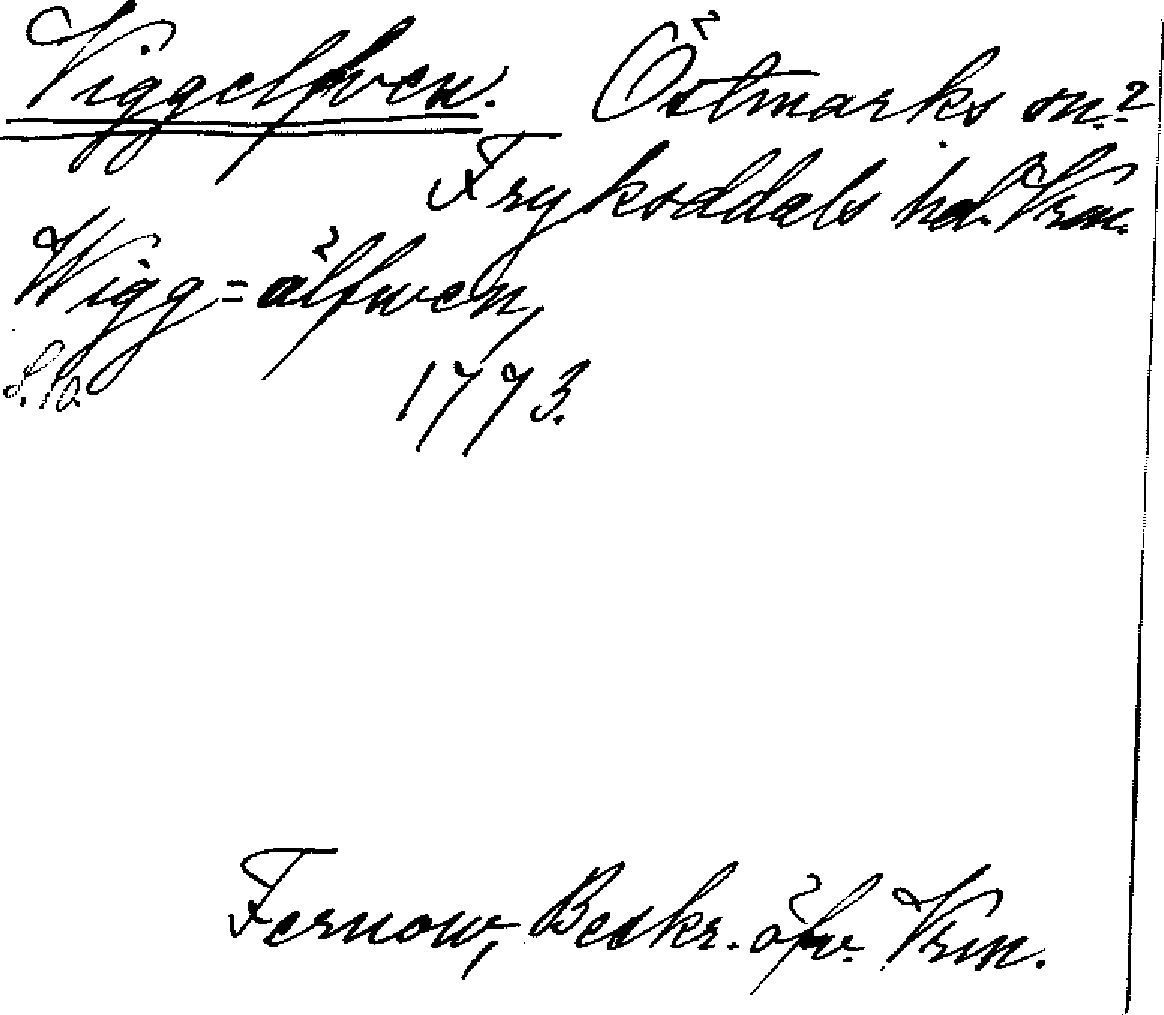 Viggelfven. Östmarks sn.?
Fryksdals hd. Vrm.
Wigg=älfwen,
S. 10. 1773.
Fernow, Beskr. öfv. Vrm.